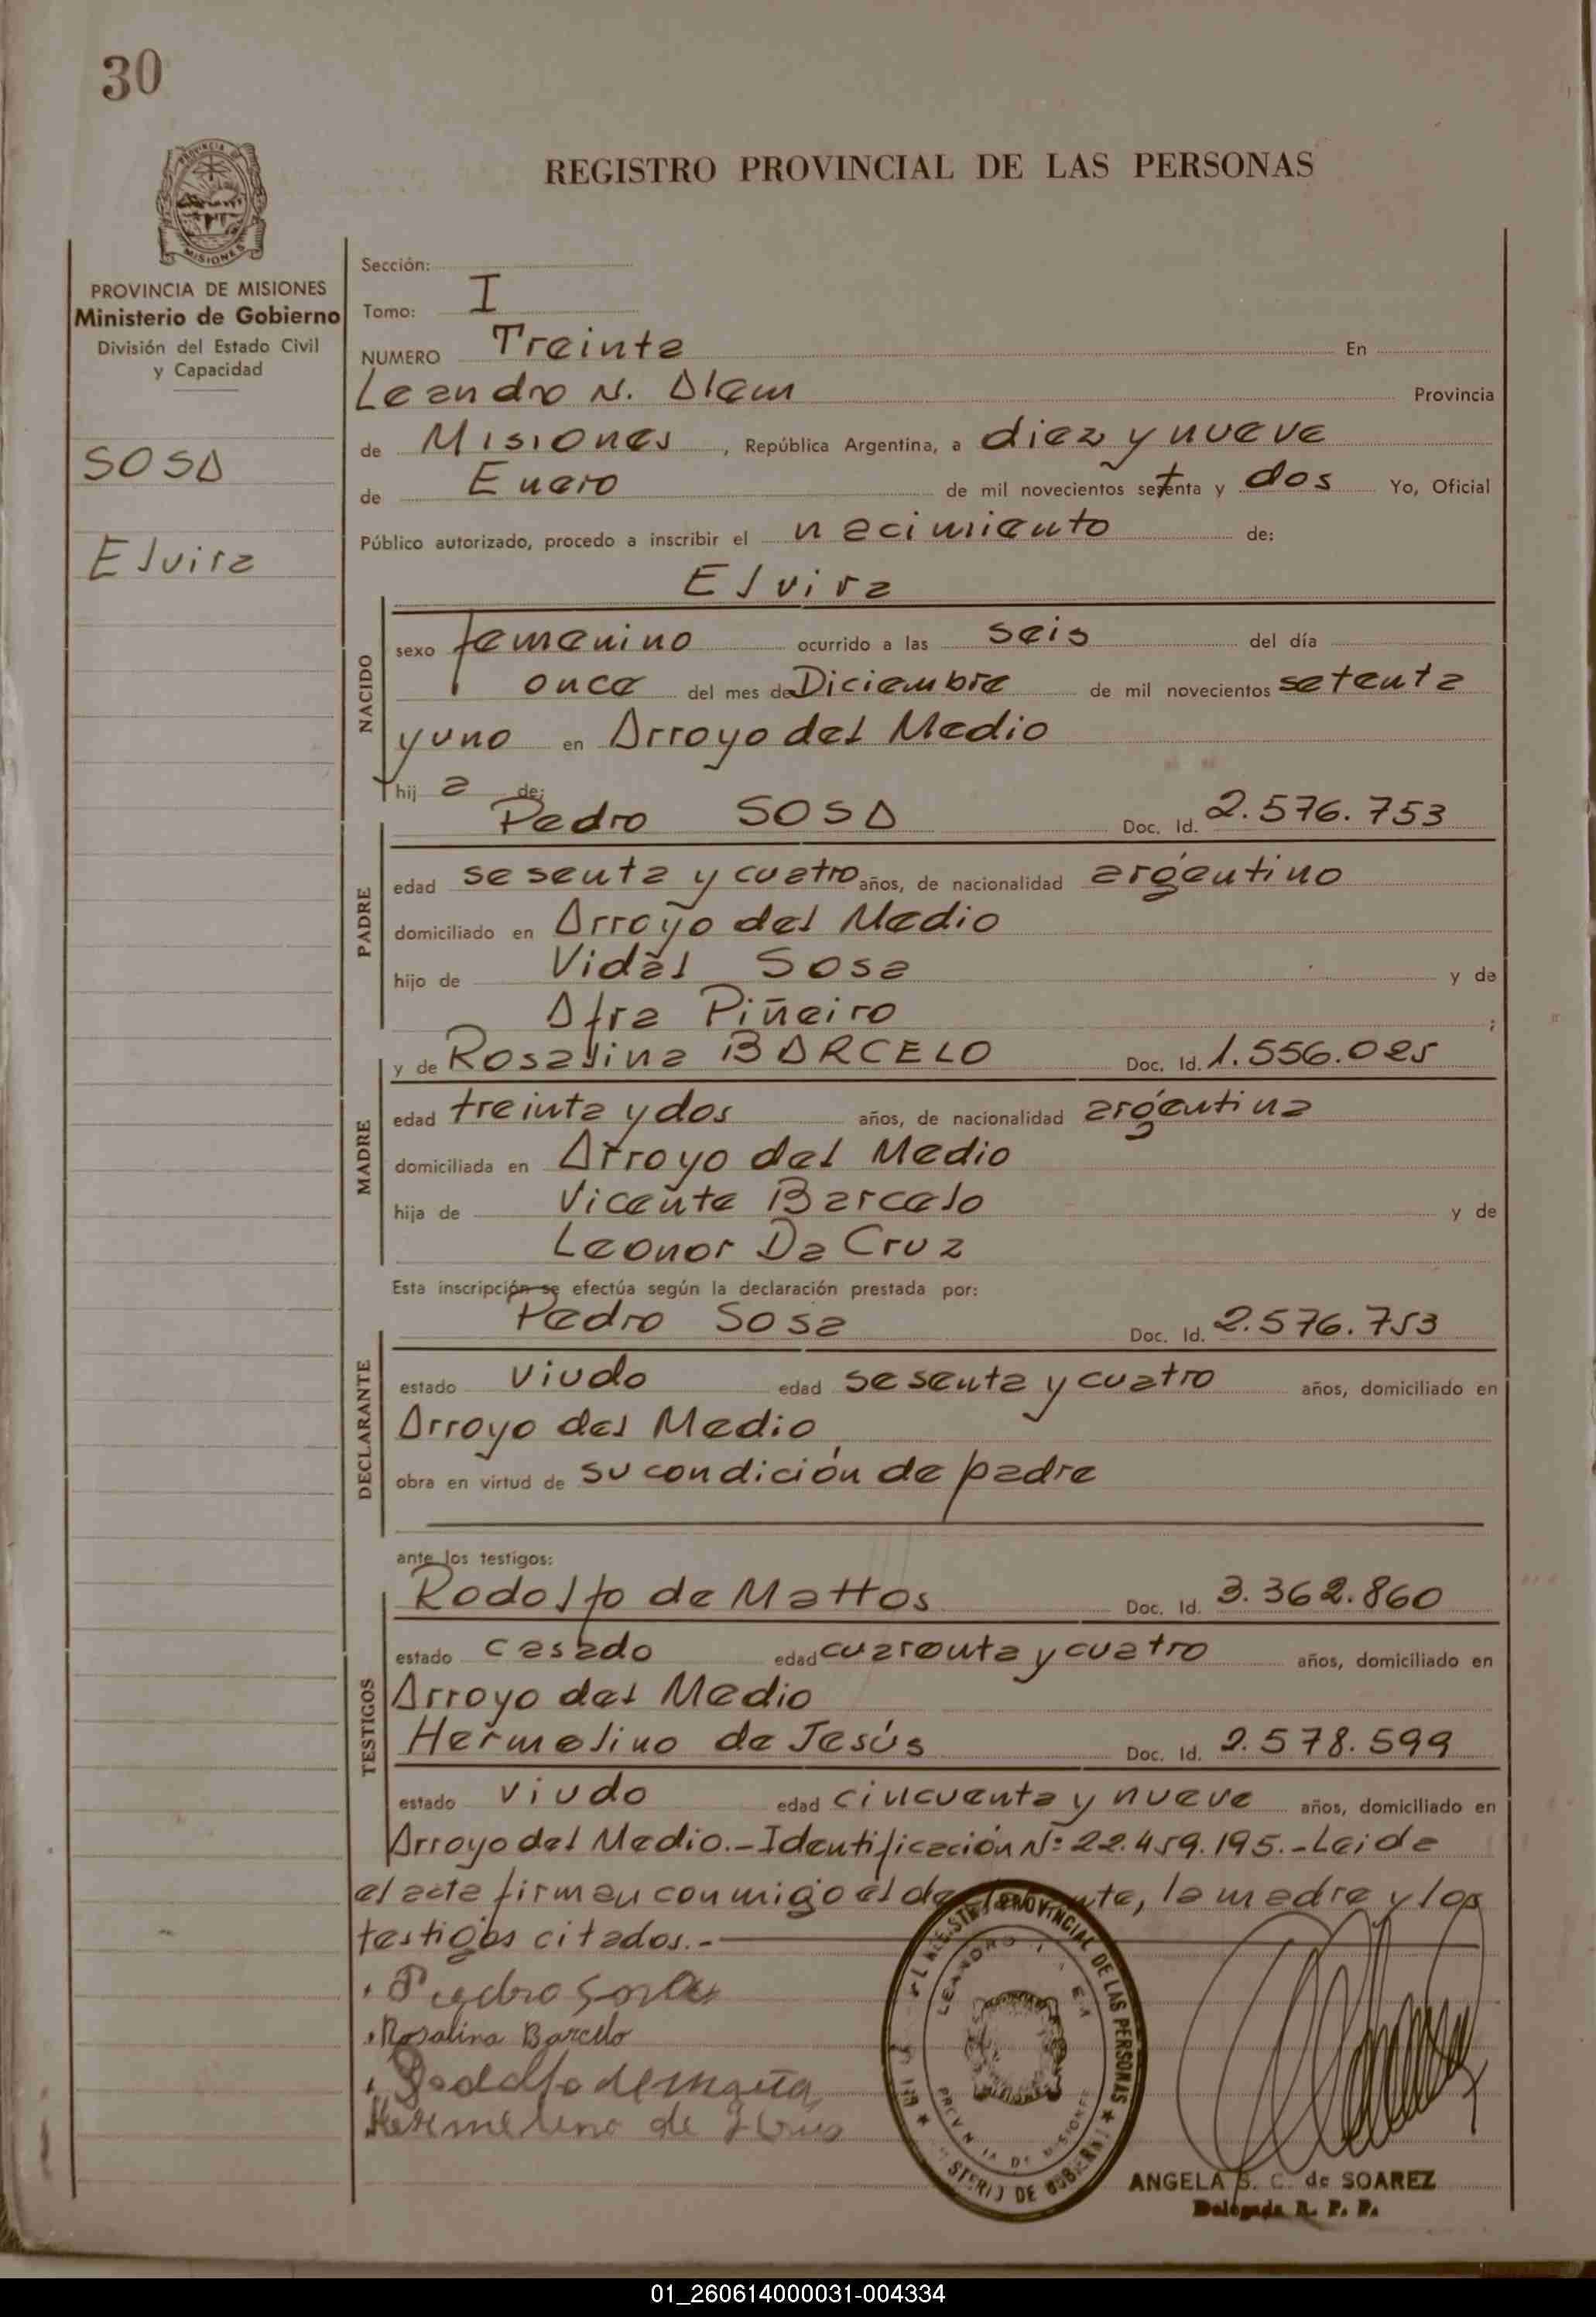 30
REGISTRO PROVINCIAL DE LAS PERSONAS
PROVINCIA DE MISIONES
Ministerio de Gobierno
División del Estado Civil
y Capacidad
SOSA
Elvira
Sección:
Tomo: I
NUMERO Treinta En
Leandro N. Alem Provincia
de Misiones, República Argentina, a diez y nueve
de Enero de mil novecientos setenta y dos Yo, Oficial
Público autorizado, procedo a inscribir el nacimiento de:
Elvira
NACIDO
sexo femenino ocurrido a las seis del día
once del mes de Diciembre de mil novecientos setenta
y uno en Arroyo del Medio
hij a de:
Pedro SOSA Doc. Id. 2.576.753
PADRE
edad sesenta y cuatro años, de nacionalidad argentino
domiciliado en Arroyo del Medio
hijo de Vidal Sosa y de
Afra Piñeiro ;
y de Rosalina BARCELO Doc. Id. 1.556.025
MADRE
edad treinta y dos años, de nacionalidad argentina
domiciliada en Arroyo del Medio
hija de Vicente Barcelo y de
Leonor Da Cruz
Esta inscripción se efectúa según la declaración prestada por:
Pedro Sosa Doc. Id. 2.576.753
DECLARANTE
estado viudo edad sesenta y cuatro años, domiciliado en
Arroyo del Medio
obra en virtud de su condición de padre
ante los testigos:
Rodolfo de Mattos Doc. Id. 3.362.860
TESTIGOS
estado casado edad cuarenta y cuatro años, domiciliado en
Arroyo del Medio
Hermelino de Jesús Doc. Id. 2.578.599
estado viudo edad cincuenta y nueve años, domiciliado en
Arroyo del Medio.- Identificación Nº 22.459.195.- Leida
el acta firman conmigo el declarante, la madre y los
testigos citados.-
Pedro Sosa
Rosalina Barcelo
Hermelino de
REGISTRO PROVINCIAL DE LAS PERSONAS
MINISTERIO DE GOBIERNO
LEANDRO N. ALEM
PROVINCIA DE MISIONES
ANGELA S. C. de SOAREZ
Delegada R. P. P.
01_260614000031-004334